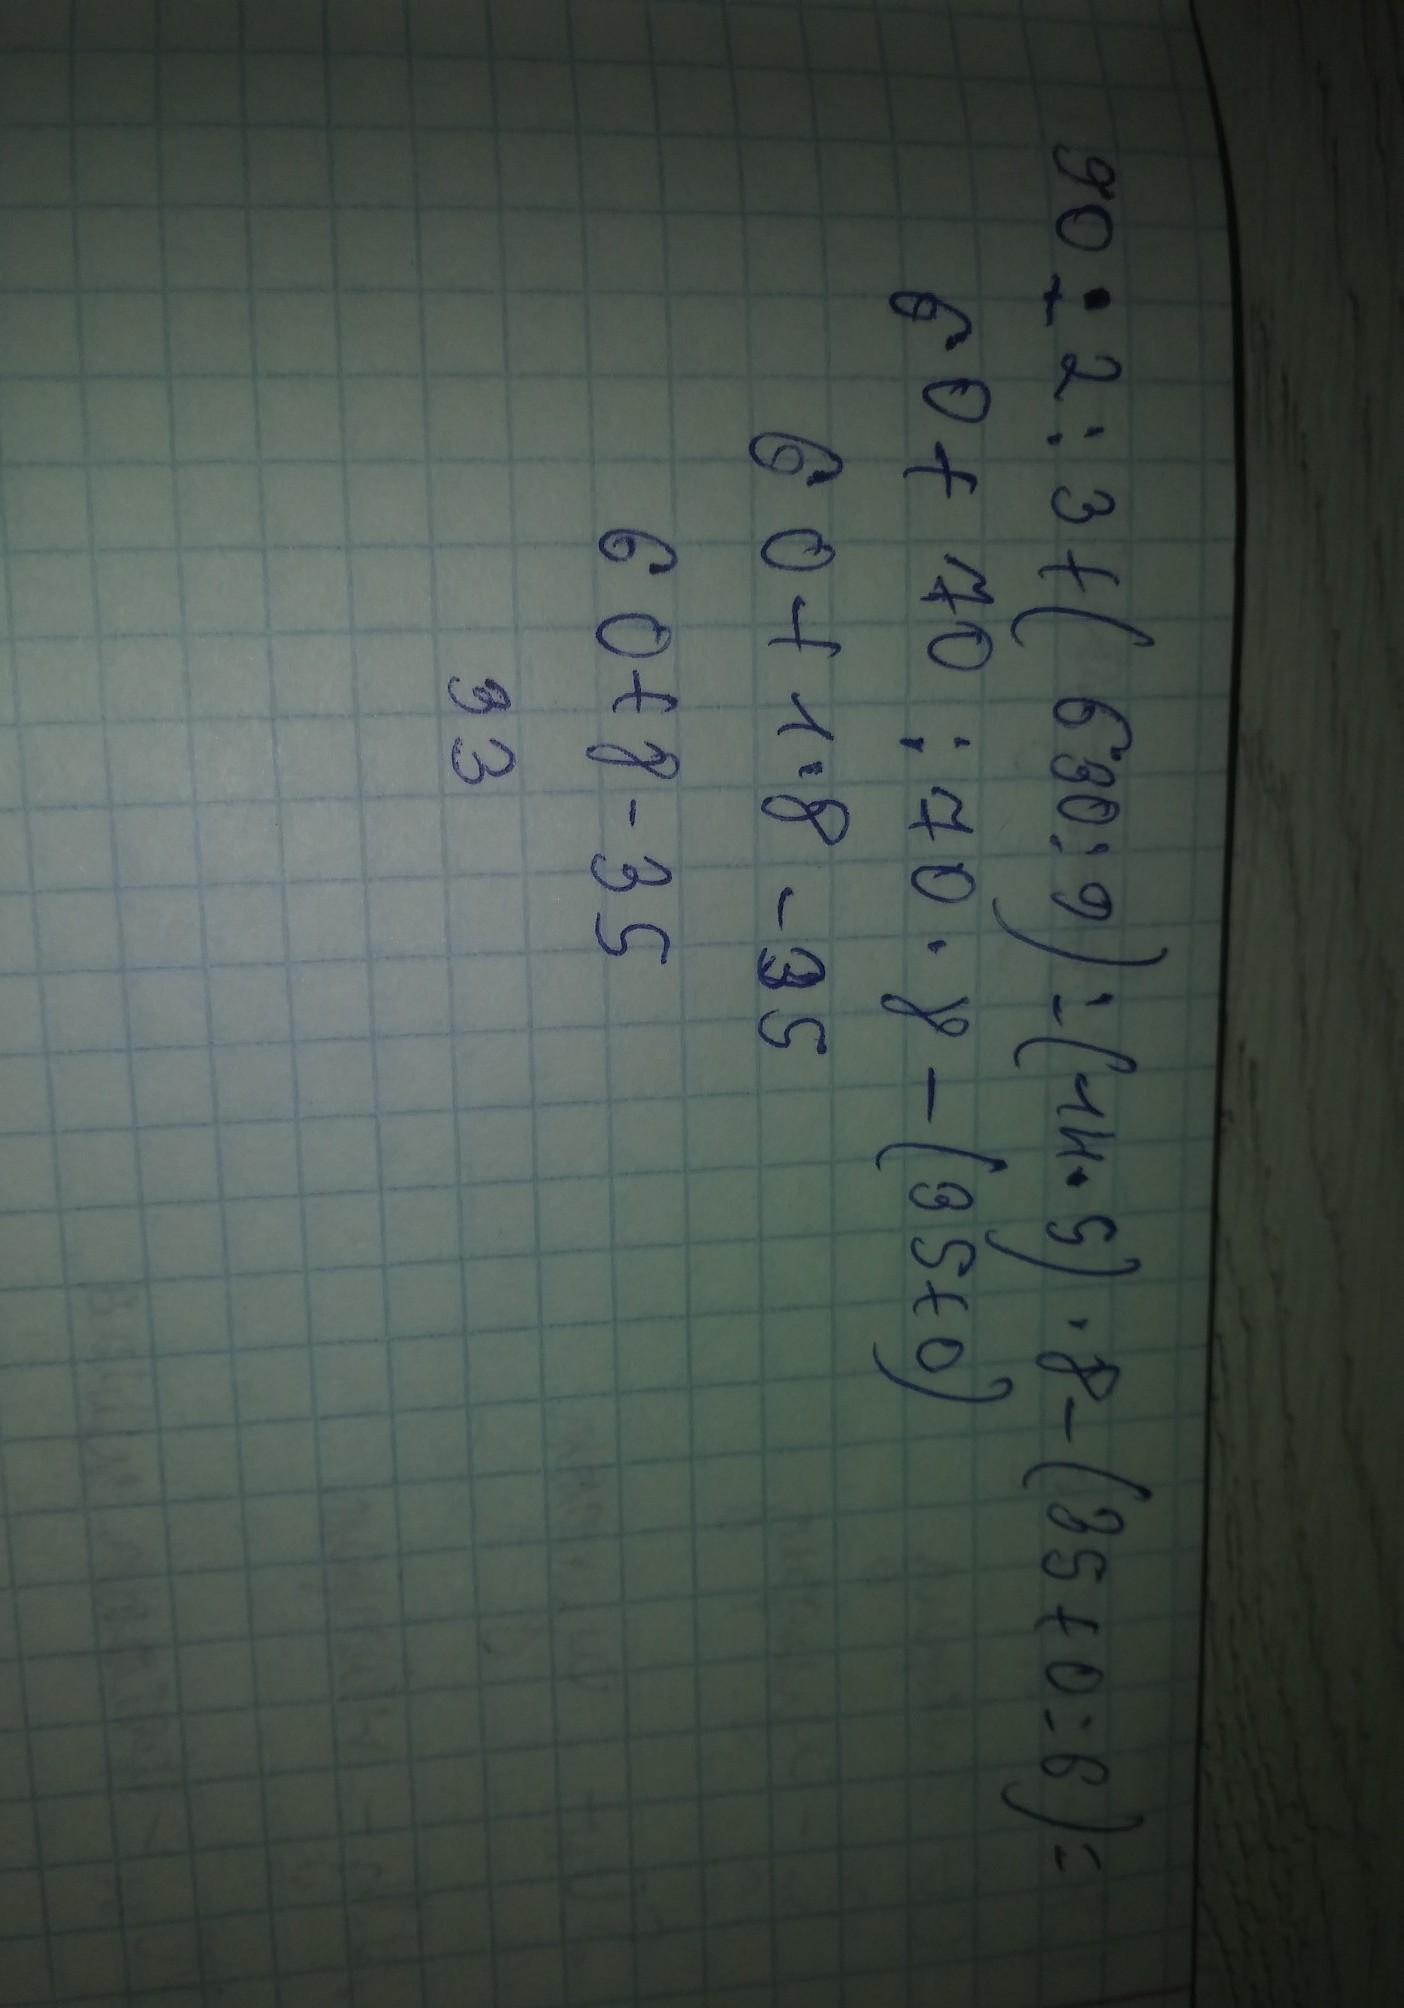 90 · 2 : 3 + ( 630 : 9 ) : ( 14 · 5 ) · 8 - ( 35 + 0 : 6 ) =
60 + 70 : 70 · 8 - ( 35 + 0 )
60 + 1 · 8 - 35
60 + 8 - 35
33